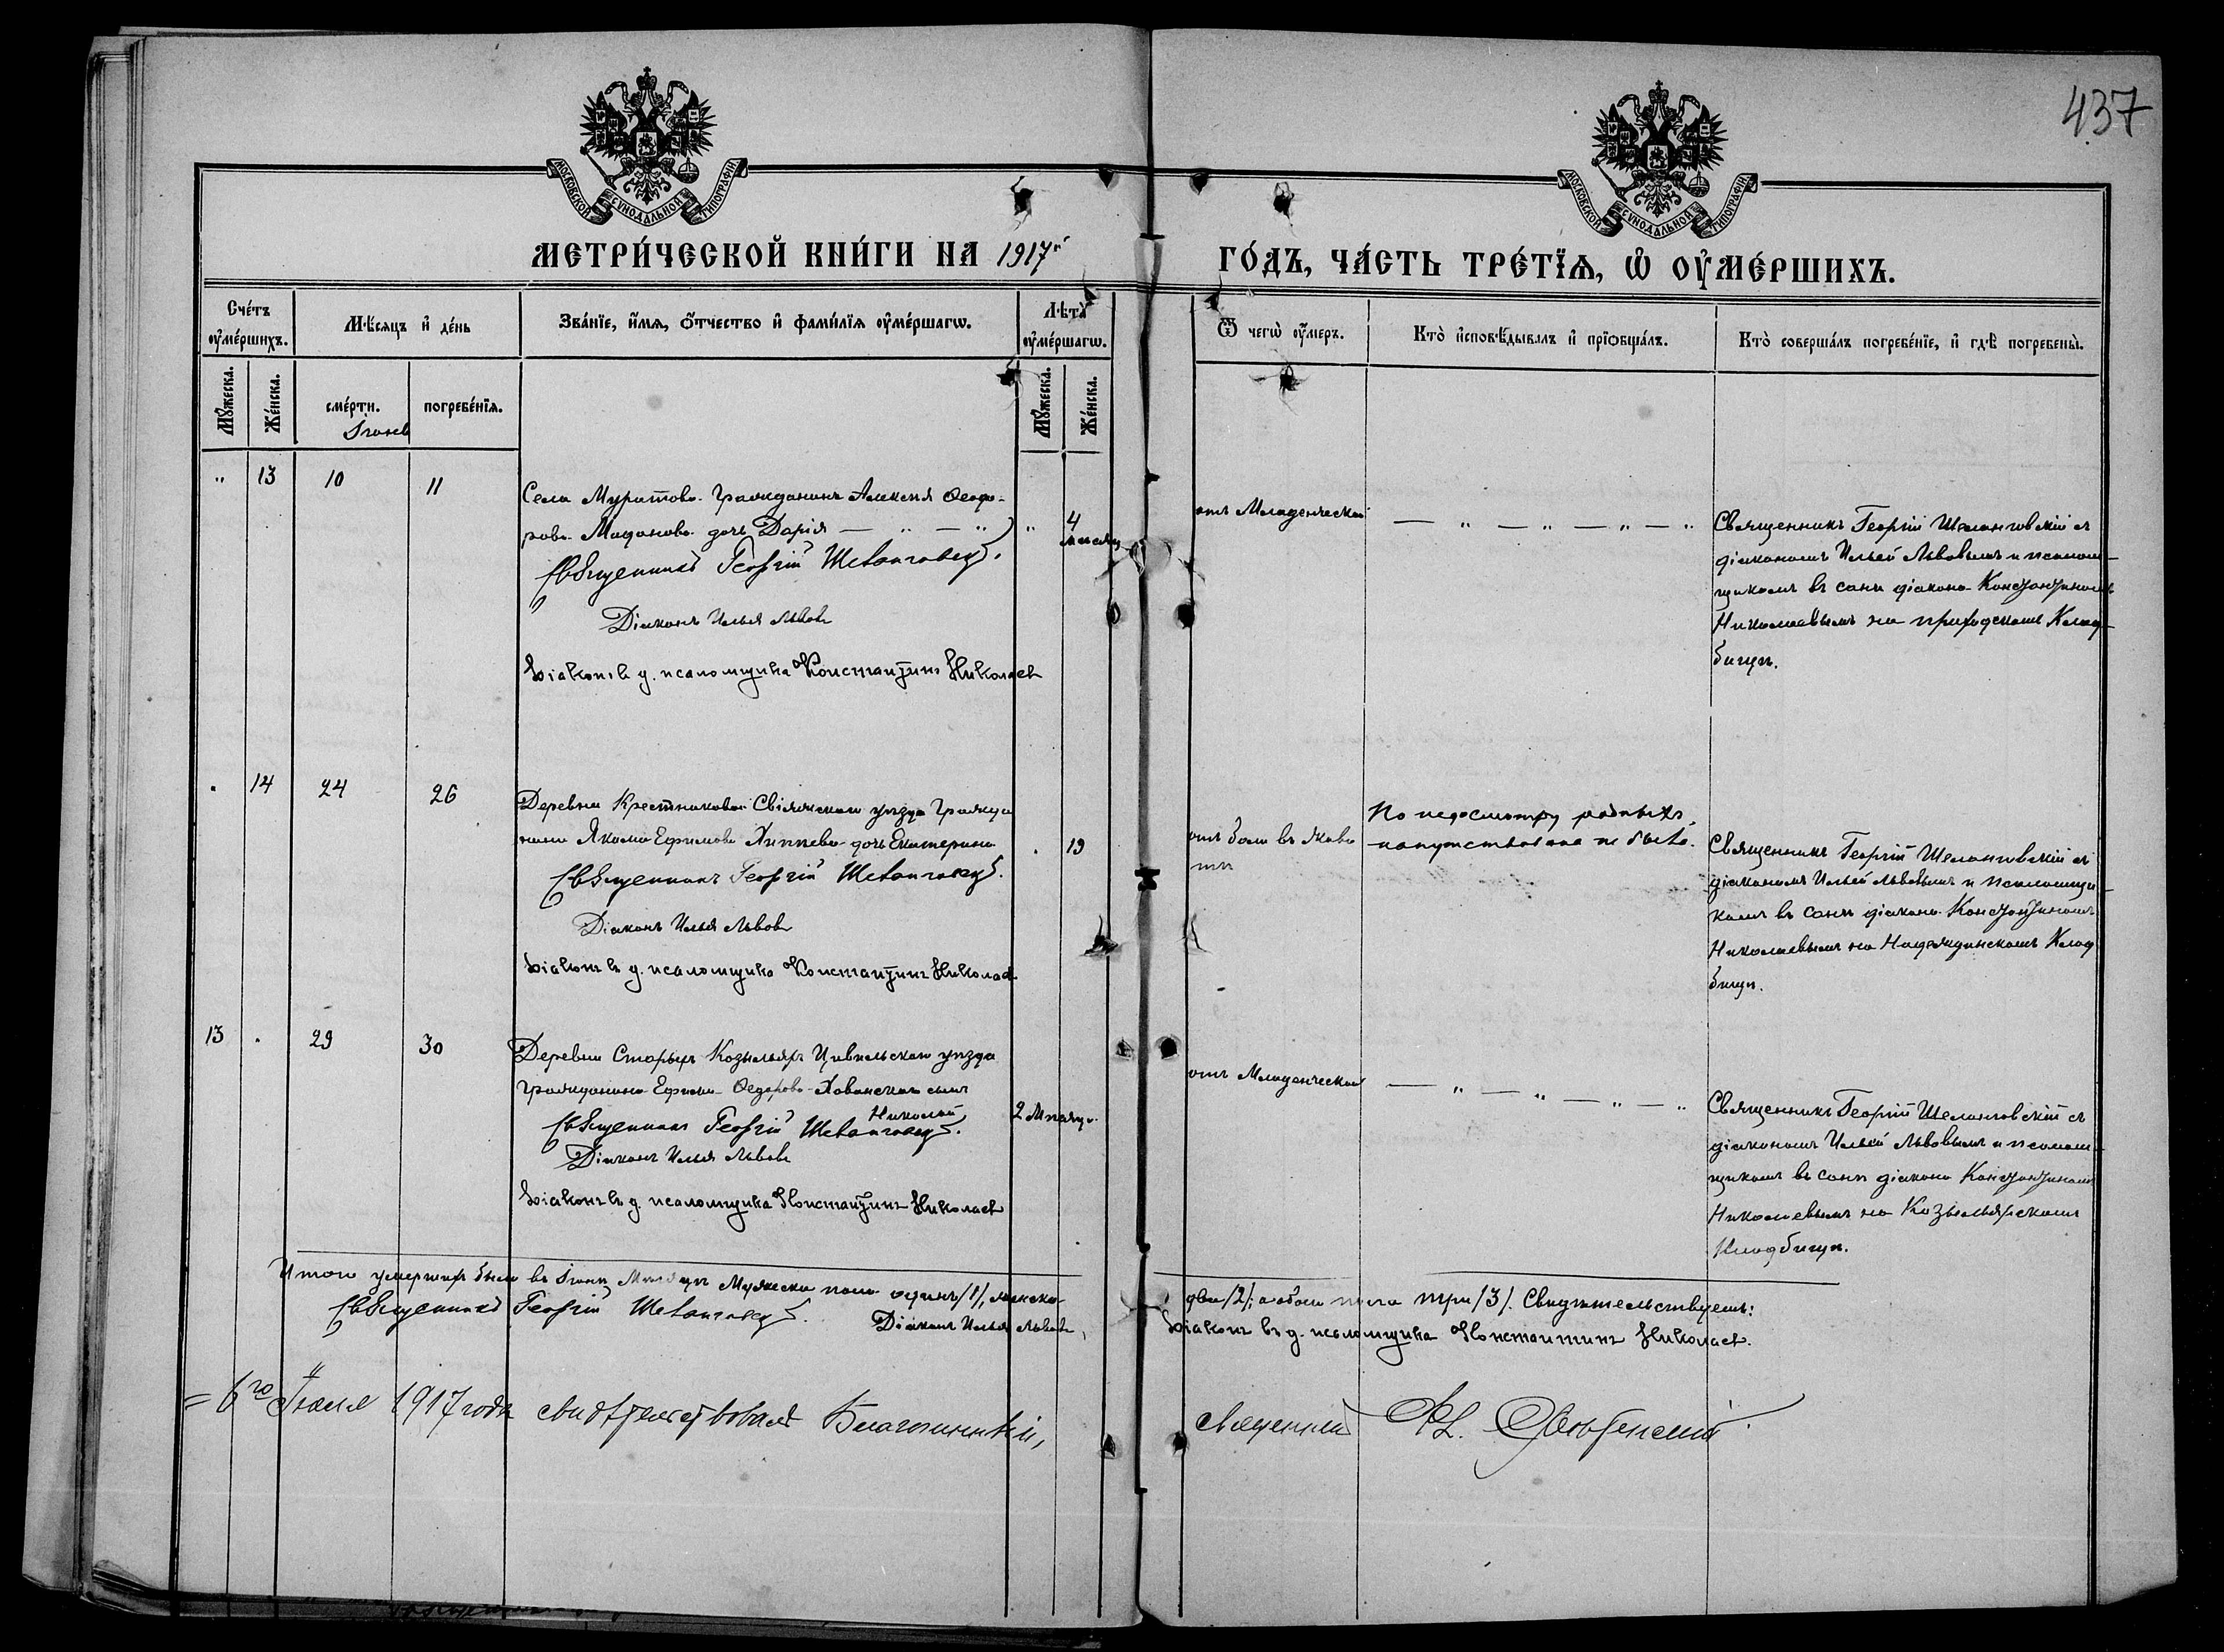 437
МОСКОВСКОЙ СУНОДАЛЬНОЙ ТИПОГРАФІИ
МОСКОВСКОЙ СУНОДАЛЬНОЙ ТИПОГРАФІИ
МЕТРИ́ЧЕСКОЙ КНИ́ГИ НА 1917й
ГО́ДЪ, ЧА́СТЬ ТРЕ́ТЇѦ, Ѡ҆ ОУ҆МЕ́РШИХЪ.
Сче́тъ оу҆ме́ршихъ.
Мѣ́сяцъ и҆ де́нь
Зва́нїе, и҆́мѧ, ѻ҆́тчество и҆ фами́лїѧ оу҆ме́ршагѡ.
Лѣ́та оу҆ме́ршагѡ.
Ѿ чегѡ̀ оу҆́меръ.
Кто̀ и҆сповѣ́дывалъ и҆ прїѡбща́лъ.
Кто̀ соверша́лъ погребе́нїе, и҆ гдѣ̀ погребены̀.
Мꙋ́жеска.
Же́нска.
сме́рти.
погребе́нїѧ.
Мꙋ́жеска.
Же́нска.
Іюнь
" 13 10 11
Села Муратова гражданина Алексѣя Ѳеодо-
рова Маданова дочь Дарія — " — "
" 4 мѣсяц
Священникъ Георгій Шеланговскій.
Діаконъ Илья Львовъ
Діаконъ в д. псаломщика Константинъ Николаев
отъ Младенческой
— " — " — " — "
Священникъ Георгій Шеланговскій съ
діакономъ Ильей Львовымъ и псалом-
щикомъ въ санѣ діакона Константиномъ
Николаевымъ на приходскомъ Клад-
бищѣ.
. 14 24 26
Деревни Крестниковой Свіяжскаго уѣзда Гражда
нина Якова Ефимова дочь Екатерина
. 19
Священникъ Георгій Шеланговскій.
Діаконъ Илья Львовъ
Діаконъ в д. псаломщика Константинъ Николаев
отъ боли въ живо
тѣ
По недосмотру родныхъ
напутствована не была.
Священникъ Георгій Шеланговскій съ
діакономъ Ильей Львовымъ и псаломщи-
комъ въ санѣ діакона Константиномъ
Николаевымъ на Надеждинскомъ Клад
бищѣ.
13 . 29 30
Деревни Старыхъ Козыльяръ Цивильскаго уѣзда
гражданина Ефима Ѳедорова Хованскаго сынъ
Николай
2 Мѣсяца
Священникъ Георгій Шеланговскій.
Діаконъ Илья Львовъ
Діаконъ в д. псаломщика Константинъ Николаев
отъ Младенческой
— " — " — " — "
Священникъ Георгій Шеланговскій съ
діакономъ Ильей Львовымъ и псалом-
щикомъ въ санѣ діакона Константиномъ
Николаевымъ на Козыльярскомъ
Кладбищѣ.
Итого умершихъ было въ Іюнѣ Мѣсяцѣ Мужеска пола одинъ/1/, женска
два/2/; а обоего пола три/3/. Свидѣтельствуемъ:
Священникъ Георгій Шеланговскій. Діаконъ Илья Львовъ,
Діаконъ въ д. псаломщика Константинъ Николаев.
= 6го Іюля 1917 года свидѣтельствовалъ Благочинный,
священникъ